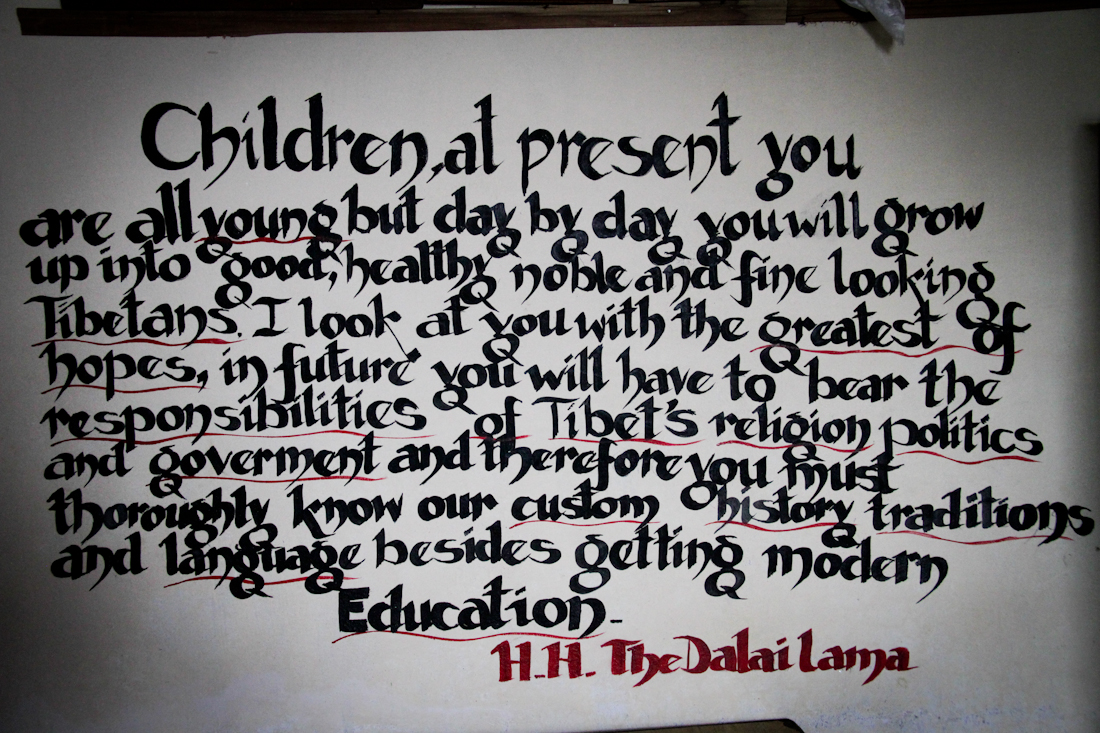 Children, at present you
are all young but day by day you will grow
up into good, healthy noble and fine looking
Tibetans. I look at you with the greatest of
hopes, in future you will have to bear the
responsibilities of Tibet's religion politics
and goverment and therefore you must
thoroughly know our custom history traditions
and language besides getting modern
Education-
H.H. The Dalai Lama